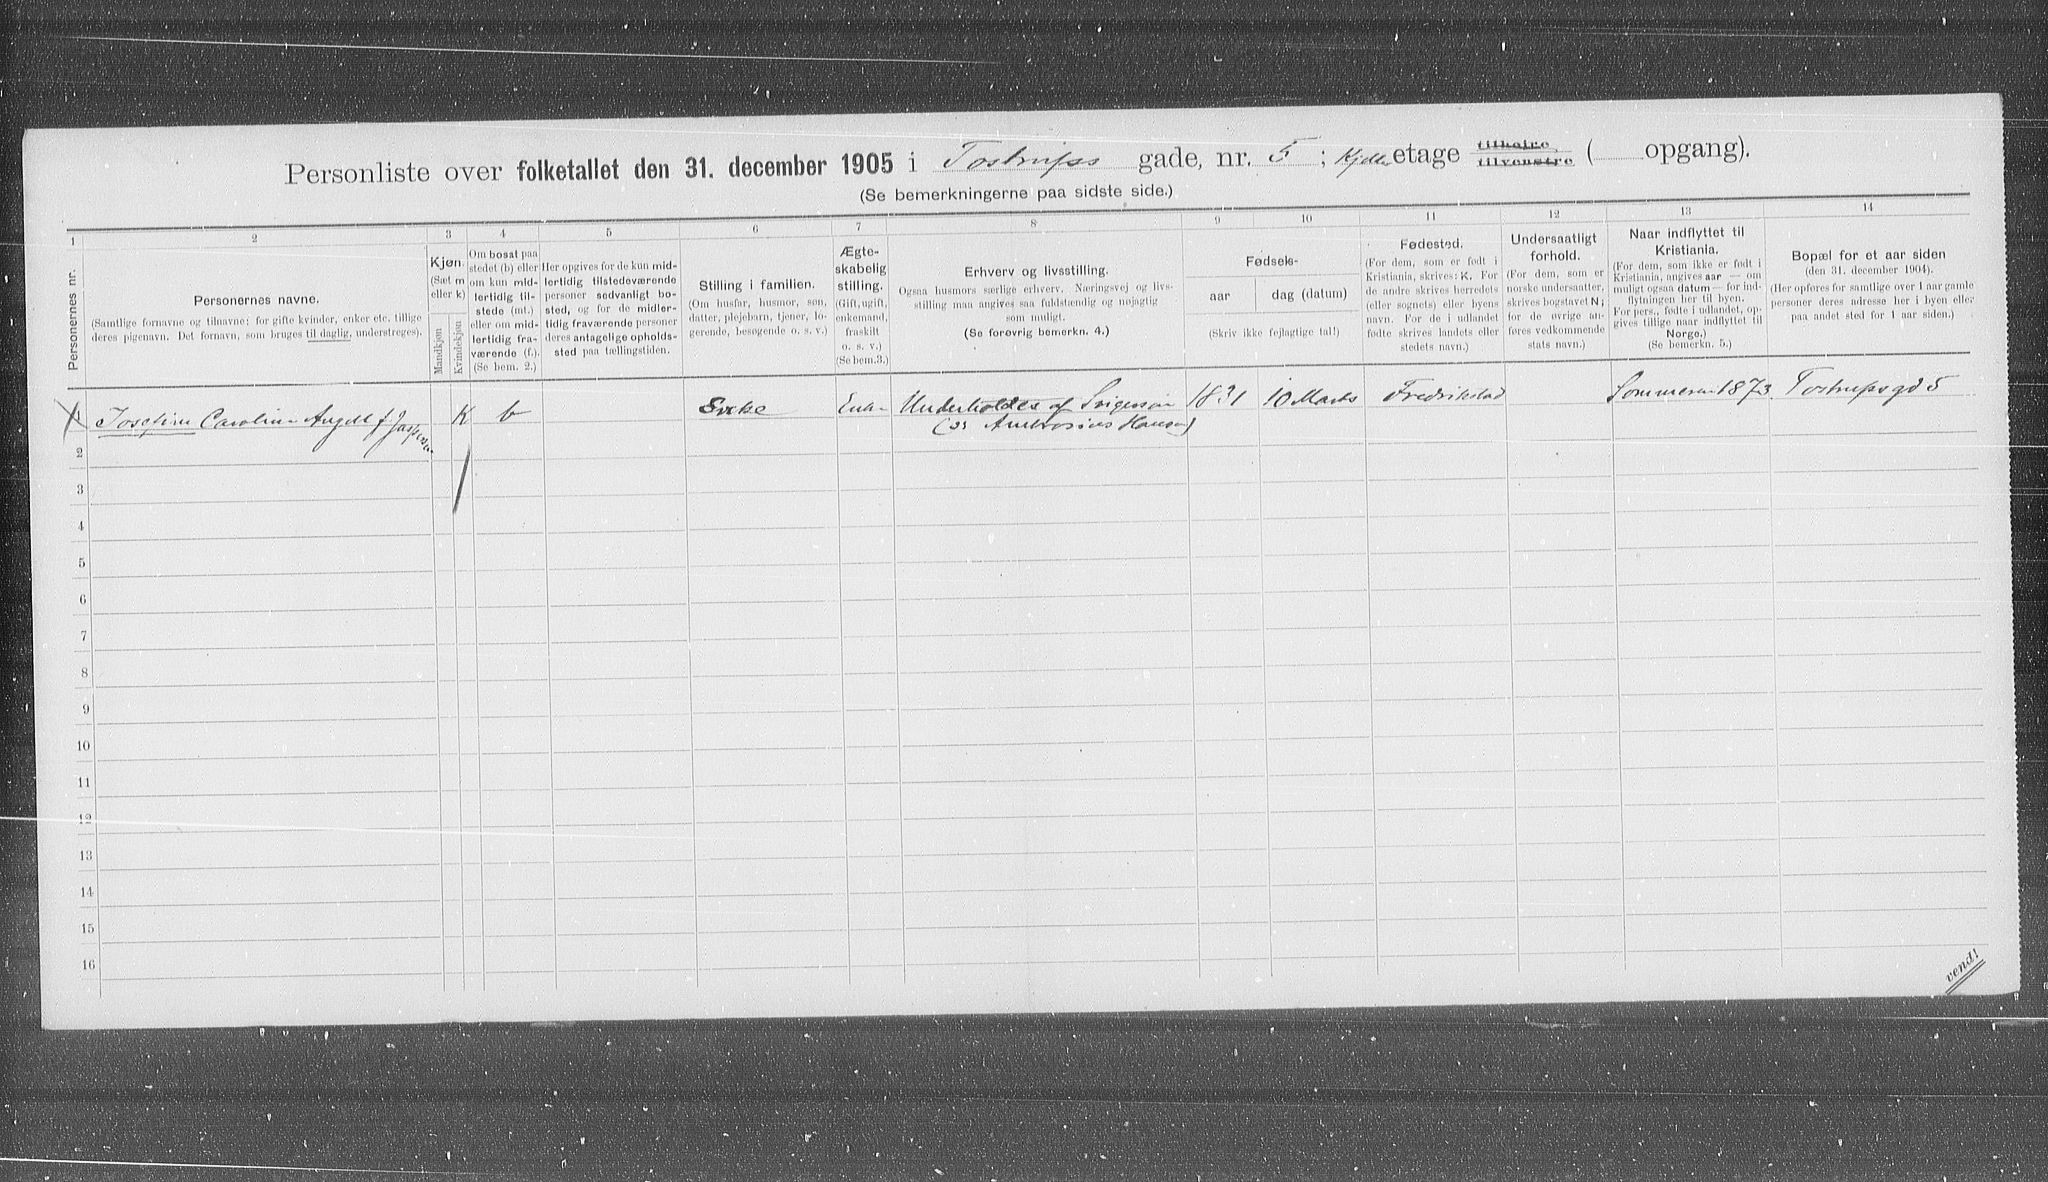 Personliste over folketallet den 31. december 1905 i Tostrups gade, nr. 5 ; Kjeller etage tilhøire, tilvenstre ( opgang).
(Se bemerkningerne paa sidste side.)
1 2 3 4 5 6 7 8 9 10 11 12 13 14
Personernes nr.
Personernes navne.
(Samtlige fornavne og tilnavne; for gifte kvinder, enker etc. tillige
deres pigenavn. Det fornavn, som bruges til daglig, understreges).
Kjøn.
(Sæt m
eller k)
Mandkjøn
Kvindekjøn
Om bosat paa
stedet (b) eller
om kun mid-
lertidig til-
stede (mt.)
eller om mid-
lertidig fra-
værende (f.).
(Se bem. 2.)
Her opgives for de kun mid-
lertidig tilstedeværende
personer sedvanligt bo-
sted, og for de midler-
tidig fraværende personer
deres antagelige opholds-
sted paa tællingstiden.
Stilling i familien.
(Om husfar, husmor, søn,
datter, plejebarn, tjener, lo-
gerende, besøgende o. s. v.)
Ægte-
skabelig
stilling.
(Gift, ugift,
enkemand,
fraskilt
o. s. v.)
(Se bem.3.)
Erhverv og livsstilling.
Ogsaa husmors særlige erhverv. Næringsvej og livs-
stilling maa angives saa fuldstændig og nøjagtig
som muligt.
(Se forøvrig bemerkn. 4.)
Fødsels-
aar
dag (datum)
(Skriv ikke fejlagtige tal!)
Fødested.
(For dem, som er født i
Kristiania, skrives: K. For
de andre skrives herredets
(eller sognets) eller byens
navn. For de i udlandet
fødte skrives landets eller
stedets navn.)
Undersaatligt
forhold.
(For dem, som er
norske undersaatter,
skrives bogstavet N;
for de øvrige an-
føres vedkommende
stats navn.)
Naar indflyttet til
Kristiania.
(For dem, som ikke er født i
Kristiania, angives aar — om
muligt ogsaa datum — for ind-
flytningen her til byen.
For pers., fødte i udlandet, op-
gives tillige naar indflyttet til
Norge.)
(Se bemerkn. 5.)
Bopæl for et aar siden
(den 31. december 1904).
(Her opføres for samtlige over 1 aar gamle
personer deres adresse her i byen eller
paa andet sted for 1 aar siden.)
1 Josephine Caroline f Jespersen K b Enke Underholdes af Svigersøn 1831 10 Marts Fredrikstad Sommeren 1873 Tostrupsgd 5
Ambrosius Hansen)
2
3
4
5
6
7
8
9
10
11
12
13
14
15
16
vend!